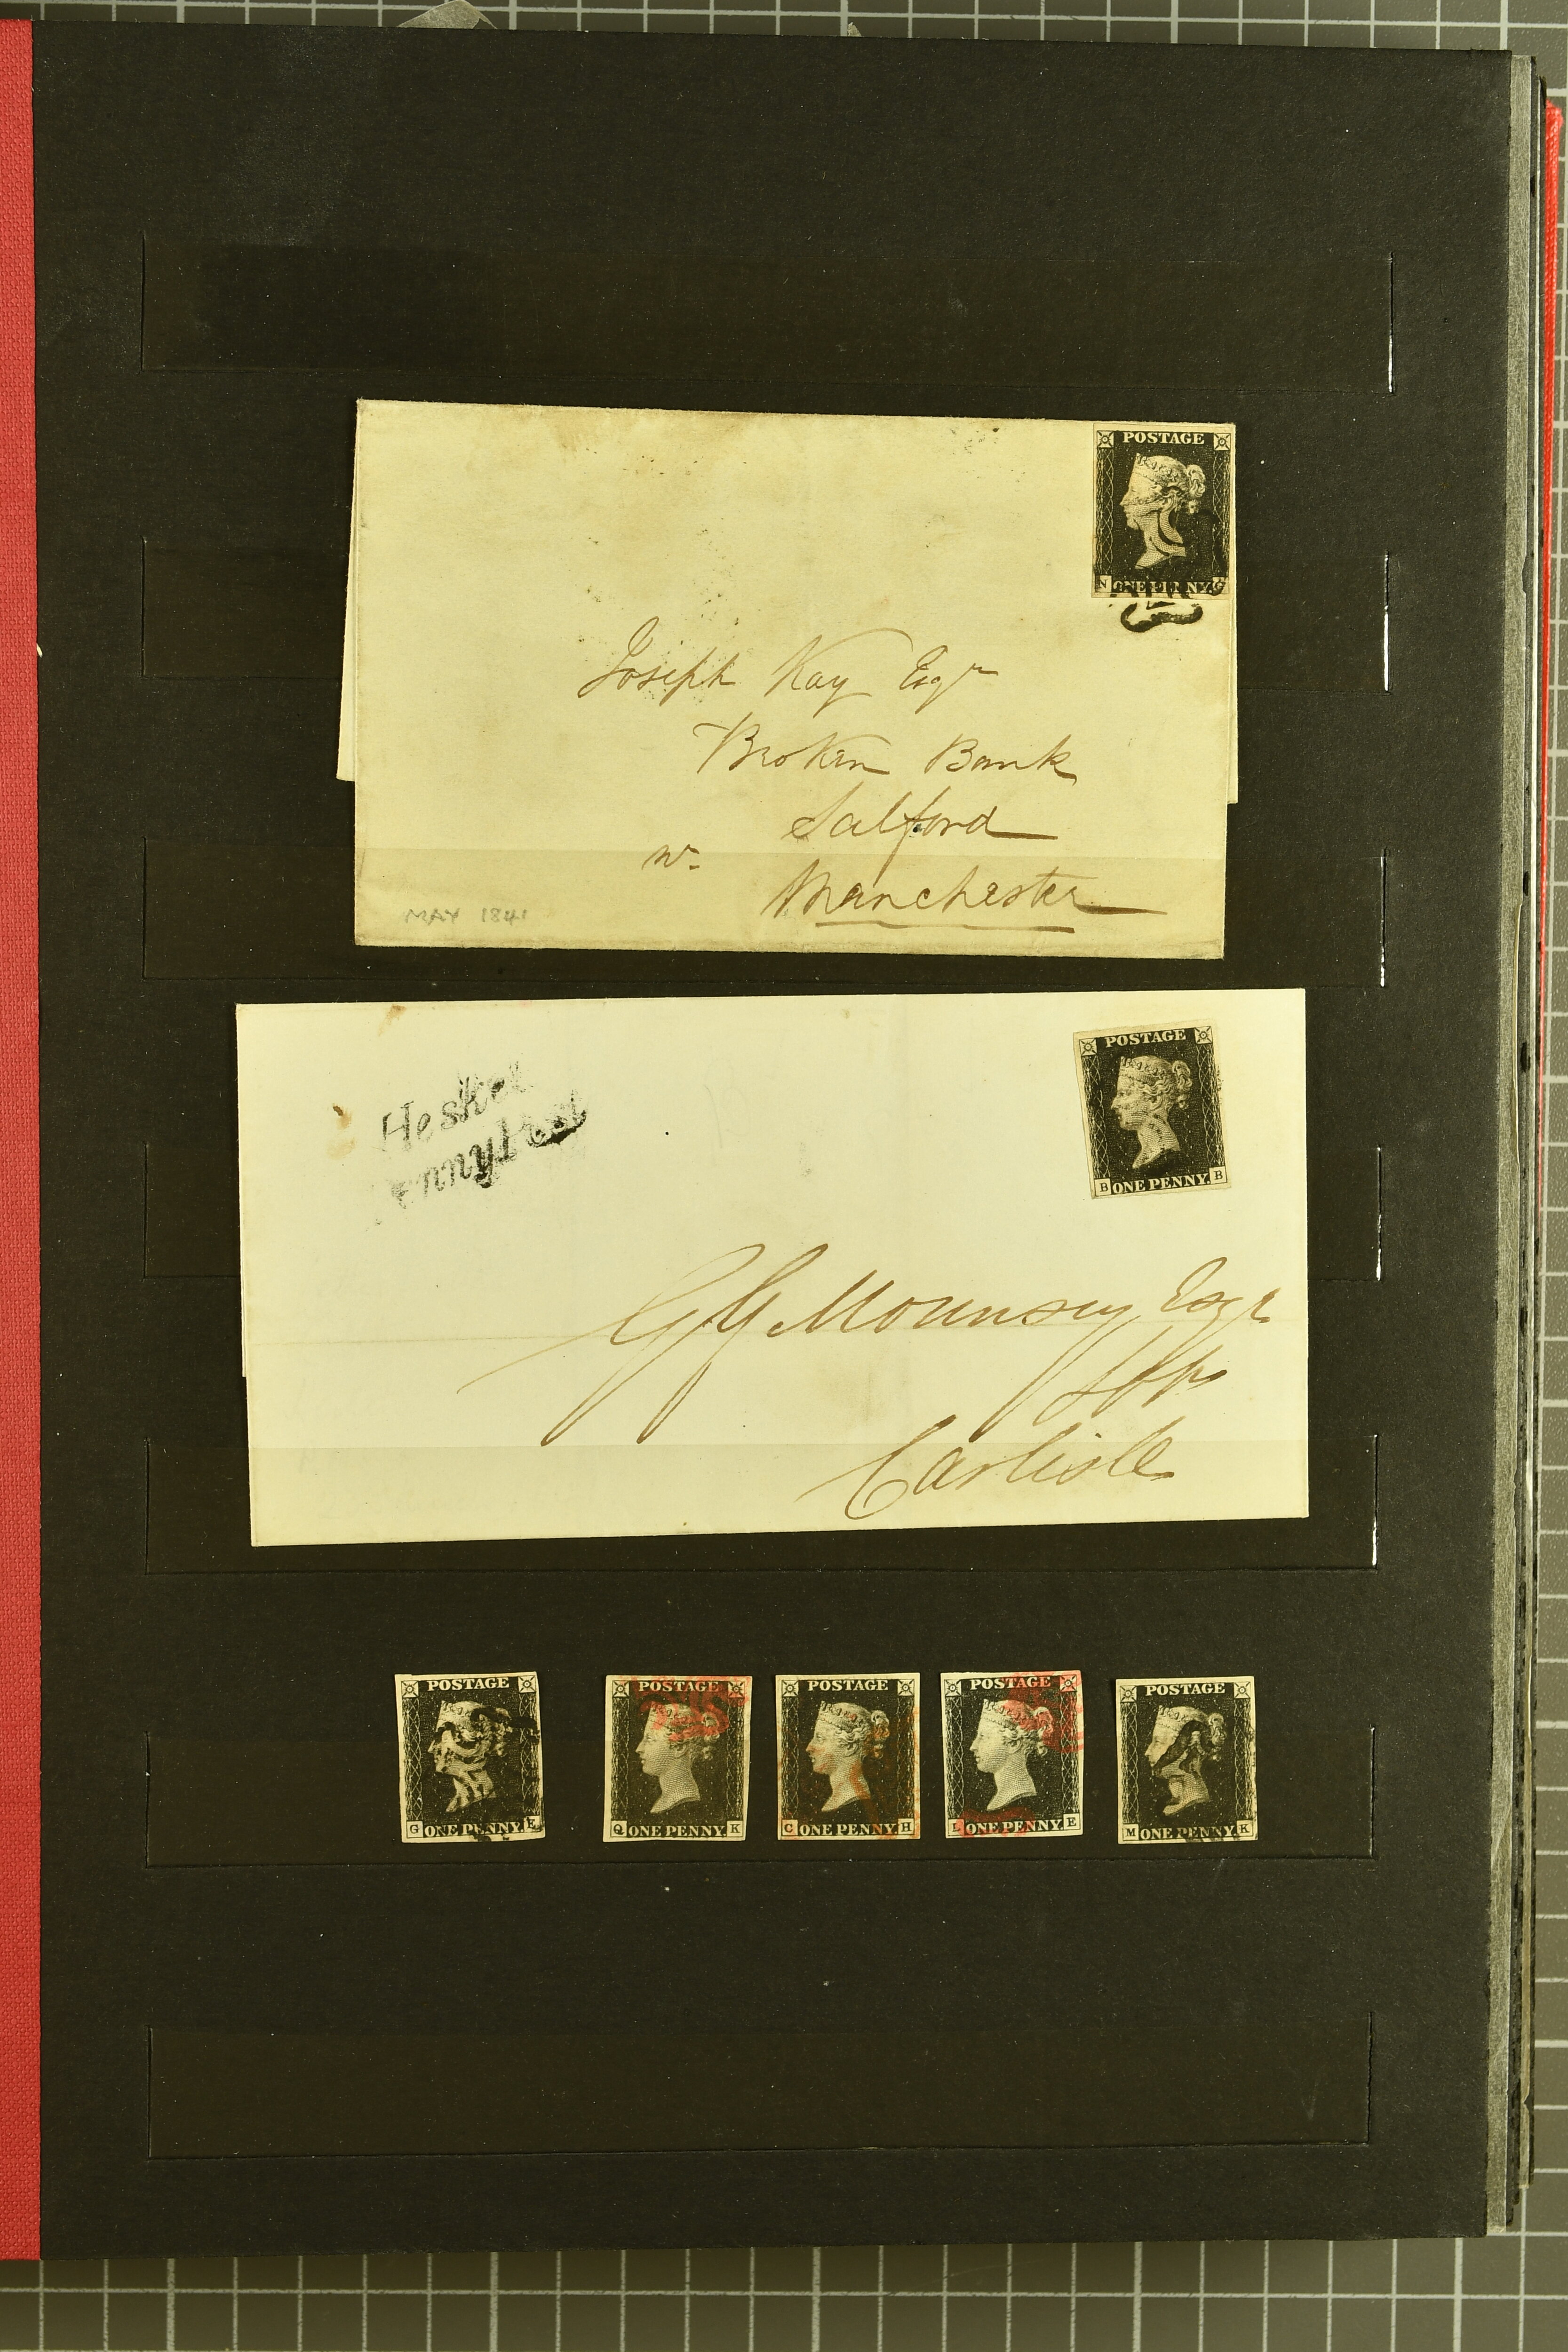 POSTAGE
N ONE PENNY G
Joseph Kay Esqr
Broken Bank
Salford
Manchester
MAY 1841
POSTAGE
B ONE PENNY. B
Hesket
ennyPost
GG Mounsey Esqr
Carlisle
POSTAGE
G ONE PENNY E
POSTAGE
Q ONE PENNY. K
POSTAGE
C ONE PENNY H
POSTAGE
L ONE PENNY. E
POSTAGE
M ONE PENNY. K